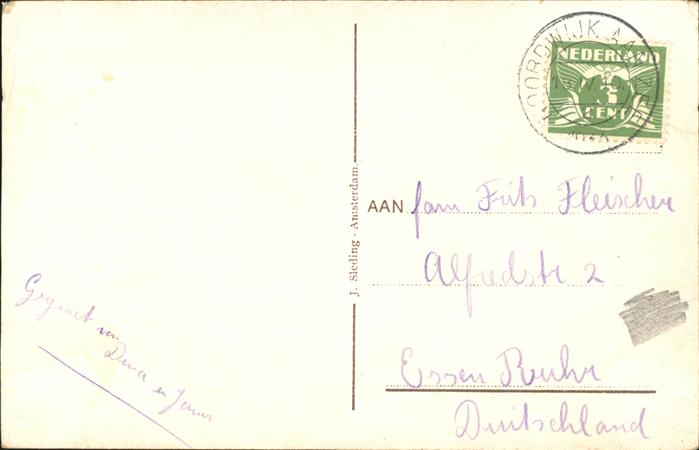 NOORDWIJK AAN ZEE
NEDERLAND
3
CENT
AAN fam Frits Fleischer
Alfredstr 2
Essen Ruhr
Duitschland
J. Sleding - Amsterdam.
Gegroet van
en